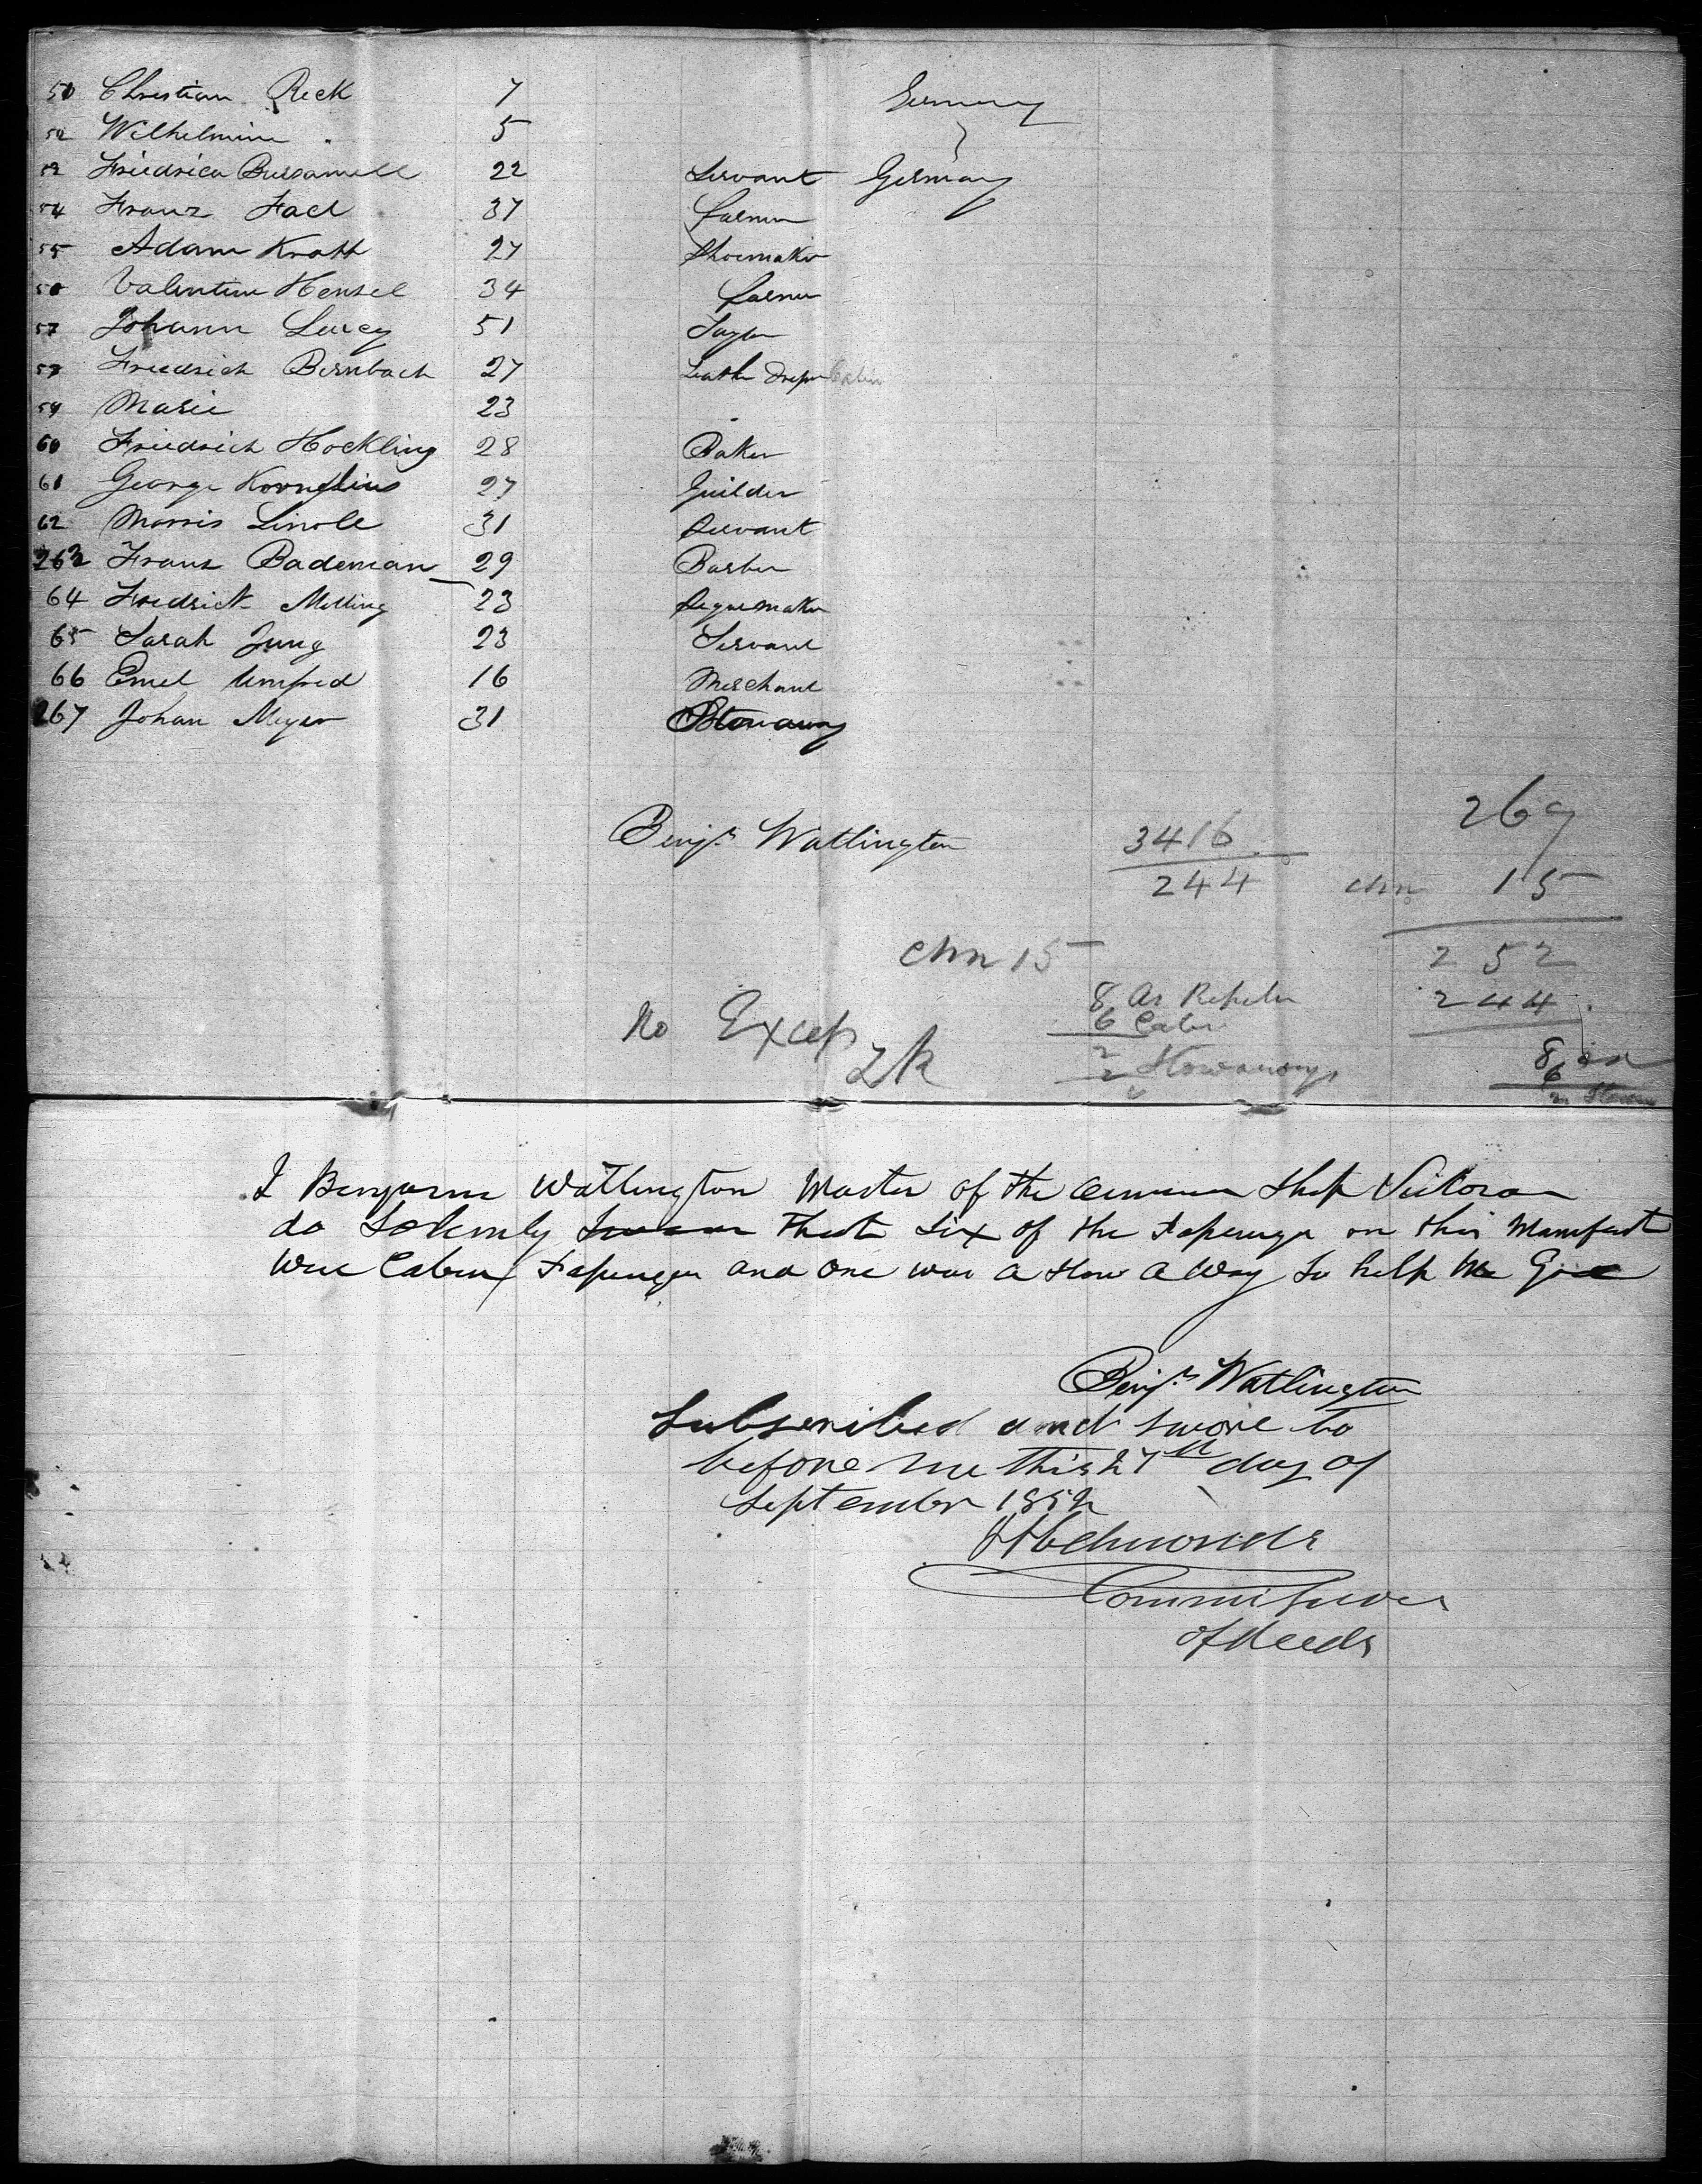 Christian Reck 7 Germany
52 Wilhelmine 5
Friedrica 22 Servant Germany
54 Franz 37 Farmer
55 Adam Kratt 27 Shoemaker
Valentine Hensel 34 Farmer
57 Johann 51 Taylor
Friedrich Bernbach 27
59 Marie 23
60 Friedrich Hockling 28 Baker
61 George Kornelius 27 Guilder
62 Morris Linole 31 Servant
263 Franz Bademan 29 Barber
64 Fredrick Melling 23 Segarmaker
65 Sarah Jung 23 Servant
66 Emel Umfred 16 Merchant
267 Johan Meyer 31 Stowaway
Benjn Watlington
3416
244
269
chn 15
252
244
8
6
chn 15
8 As
6 Cabin
2 Stowaways
No Excep
I Benjamin Watlington Master of the American Ship
do Solemnly Swear that Six of the Pasenger on this Manifest
were Cabin Pasenger and one was A Stow A Way So help Me God
Benjn Watlington
Subscribed and swore to
before me this 27th day of
September 1852
Commissioner
of Deeds